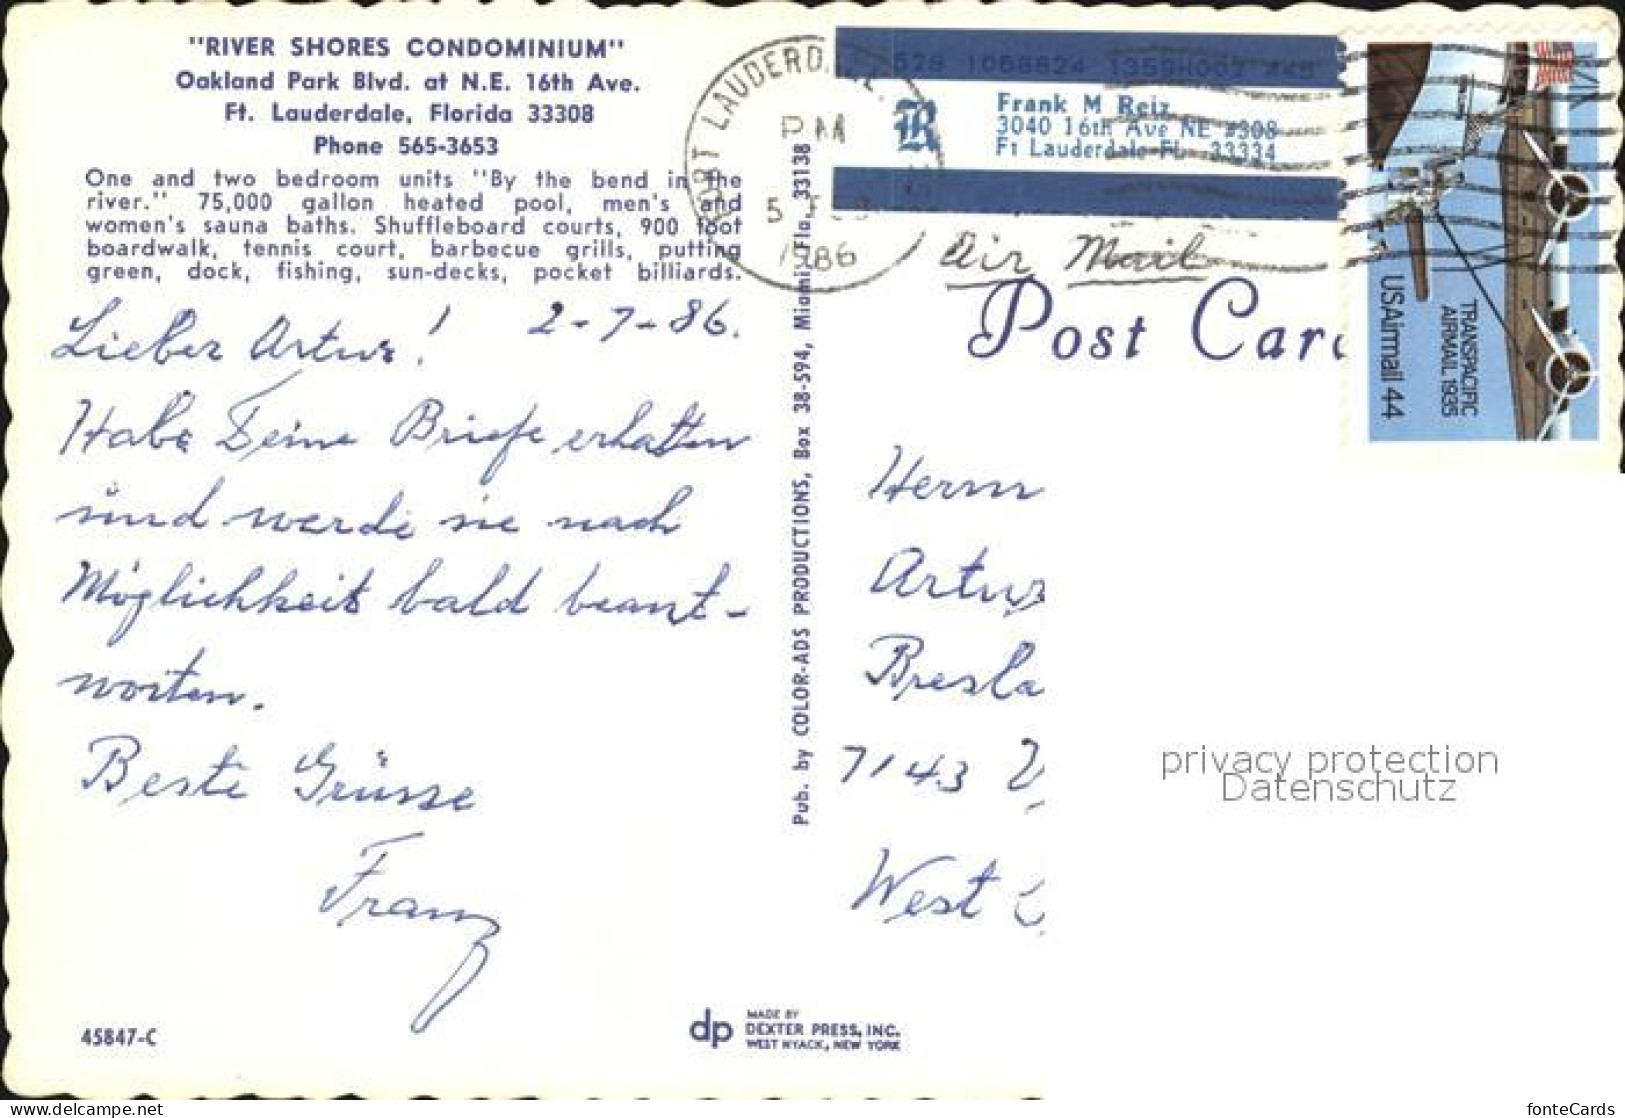 "RIVER SHORES CONDOMINIUM"
Oakland Park Blvd. at N.E. 16th Ave.
Ft. Lauderdale, Florida 33308
Phone 565-3653
One and two bedroom units "By the bend in the
river." 75,000 gallon heated pool, men's and
women's sauna baths. Shuffleboard courts, 900 foot
boardwalk, tennis court, barbecue grills, putting
green, dock, fishing, sun-decks, pocket billiards.
2-7-86.
Lieber Artur!
Habe Deine Briefe erhalten
und werde sie nach
Möglichkeit bald beant-
worten.
Beste Grüsse
Franz
45847-C
Pub. by COLOR-ADS PRODUCTIONS, Box 38-594, Miami, Fla. 33138
dp
MADE BY
DEXTER PRESS, INC.
WEST NYACK, NEW YORK
FORT LAUDERDALE,
PM
5
1986
Frank M Reiz
3040 16th Ave NE #308
Ft Lauderdale FL 33334
Air Mail
Post Car
USAirmail 44
TRANSPACIFIC
AIRMAIL 1935
Herrn
Artur
Bresla
7143 V
West
privacy protection
Datenschutz
fonteCards